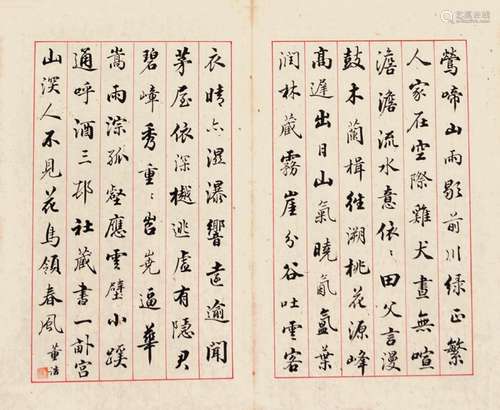 鶯啼山雨歇前川綠正繁
人家在空際雞犬晝無喧
澹澹流水意依〻田父言漫
鼓木蘭楫往溯桃花源峰
高遲出日山氣曉氤氳葉
潤林藏霧崖分谷吐雲客
衣晴亦濕瀑響遠逾聞
茅屋依深樾逃虛有隱君
碧嶂秀重〻岧嶤逼華
嵩雨淙孤壑應雲壁小蹊
通呼酒三邨社藏書一畝宮
山深人不見花鳥領春風 董浩